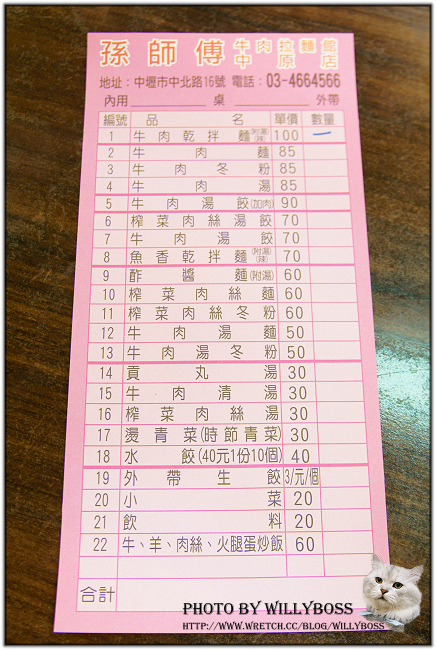 孫師傅 牛肉拉麵館
中原店
地址：中壢市中北路16號 電話：03-4664566
內用 桌 外帶
編號 品名 單價 數量
1 牛肉乾拌麵(附湯)(辣) 100 一
2 牛肉麵 85
3 牛肉冬粉 85
4 牛肉湯 85
5 牛肉湯餃(加肉) 90
6 榨菜肉絲湯餃 70
7 牛肉湯餃 70
8 魚香乾拌麵(附湯)(辣) 70
9 酢醬麵(附湯) 60
10 榨菜肉絲麵 60
11 榨菜肉絲冬粉 60
12 牛肉湯麵 50
13 牛肉湯冬粉 50
14 貢丸湯 30
15 牛肉清湯 30
16 榨菜肉絲湯 30
17 燙青菜(時節青菜) 30
18 水餃(40元1份10個) 40
19 外帶生餃 3/元/個
20 小菜 20
21 飲料 20
22 牛、羊、肉絲、火腿蛋炒飯 60
合計
PHOTO BY WILLYBOSS
HTTP://WWW.WRETCH.CC/BLOG/WILLYBOSS